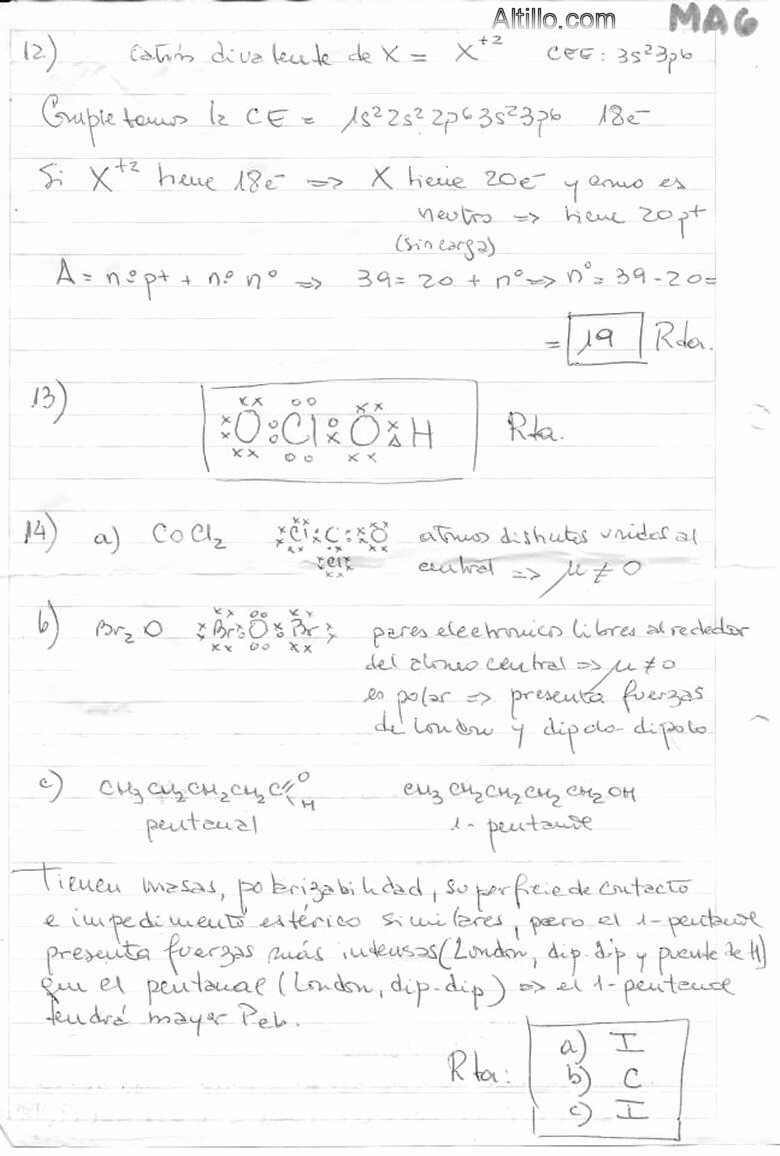 Altillo.com
MAG
12) Catión divalente de X = X+2 CEE: 3s²3p6
Completamos la CE = 1s²2s²2p6 3s²3p6 18e-
Si X+2 tiene 18e- => X tiene 20e- y como es
neutro => tiene 20 p+
(sin carga)
A = nº p+ + nº n° => 39 = 20 + n° => n° = 39 - 20 =
= 19 Rta.
13) O Cl O H Rta.
14) a) COCl2 Cl C O átomos distintos unidos al
Cl central => μ ≠ 0
b) Br2O Br O Br pares electrónicos libres alrededor
del átomo central => μ ≠ 0
es polar => presenta fuerzas
de London y dipolo-dipolo
c) CH3CH2CH2CH2C O H CH3CH2CH2CH2CH2OH
pentanal 1-pentanol
Tienen masas, polarizabilidad, superficie de contacto
e impedimento estérico similares, pero el 1-pentanol
presenta fuerzas más intensas (London, dip-dip y puente de H)
que el pentanal (London, dip-dip) => el 1-pentanol
tendrá mayor Peb.
Rta: a) I
b) C
c) I